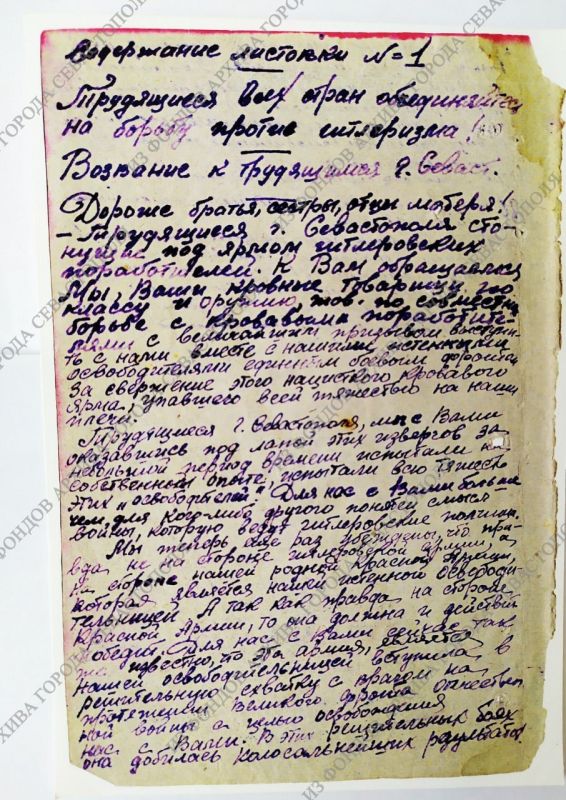 Содержание листовки №=1
Трудящиеся всех стран объединяйтесь
на борьбу против гитлеризма!
Воззвание к трудящимся г. Севаст.
Дорогие братья, сестры, отцы матеря!
- Трудящиеся г. Севастополя сто-
нущие под ярмом гитлеровских
поработителей. К Вам обращаемся
Мы, Ваши кровные товарищи по
классу и оружию, тов. по совместн
борьбе с кровавыми поработите-
лями с величайшим призывом выступи-
ть с нами вместе с нашими истенными
освободителями единым боевым фронтом
За свержение этого нацисткого кровавого
ярма, упавшего всей тяжестью на наши
плечи.
Трудящиеся г. Севастополя, мы с Вами
оказавшись под лапой этих извергов за
небольшой период времени испытали на
собственном опыте, испытали всю тяжесть
этих "освободителей". Для нас с Вами больше
чем, для кого-либо другого понятен смысл
войны, которую ведут гитлеровские
Мы теперь еще раз убеждены, что пра-
вда не на стороне гитлеровской армии, а
на стороне нашей родной Красной Армии,
которая является нашей истенной освободи-
тельницей. А так как правда на стороне
Красной Армии, то она должна и действи
победи. Для нас с Вами сейчас так
же известно, что эта армия, является
нашей освободительницей вступила в
решительную схватку с врагом на
протяжении великого фронта отечествен
ной войны с целью освобождения
нас с Вами. В этих решительных боях
она добилась колосальнейших результатов
ИЗ ФОНДОВ АРХИВА ГОРОДА СЕВАСТОПОЛЯ